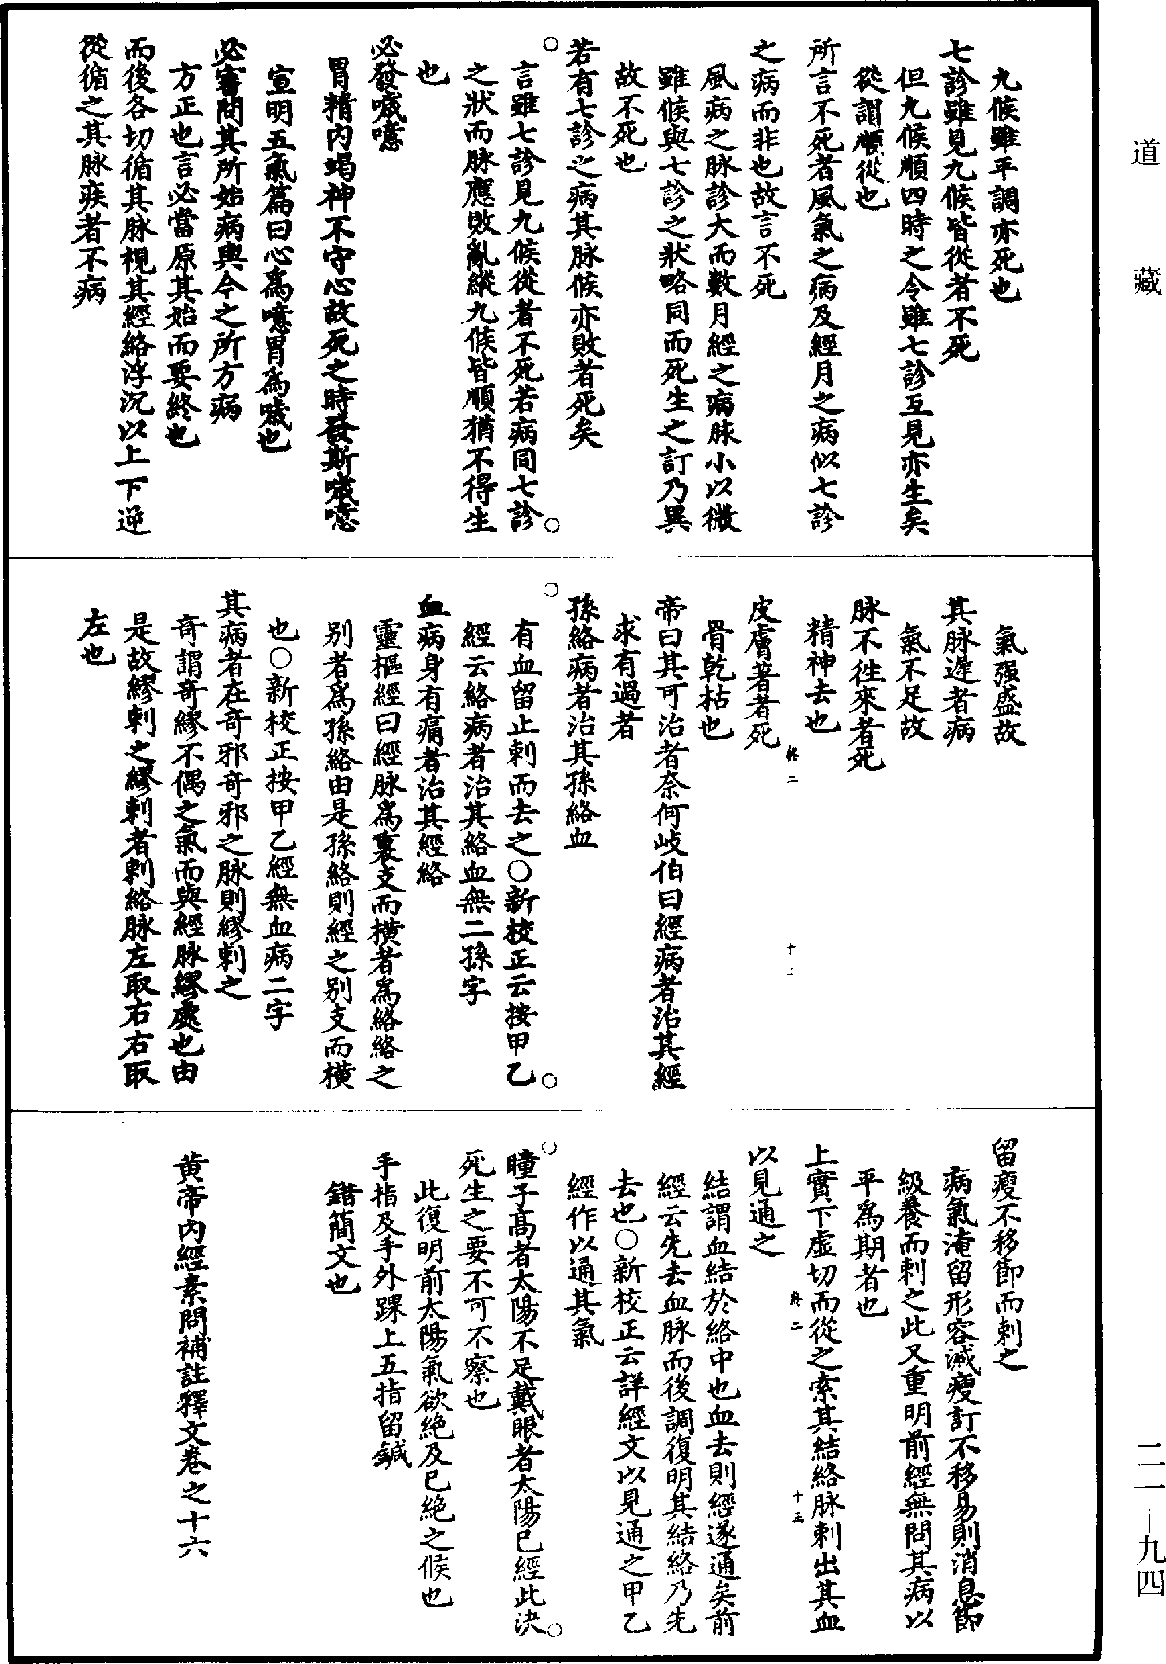 道藏
九候雖平調亦死也
七診雖見九候皆從者不死
但九候順四時之令雖七診互見亦生矣
從謂順從也
所言不死者風氣之病及經月之病似七診
之病而非也故言不死
風病之脉診大而數月經之病脉小以微
雖候與七診之狀略同而死生之訂乃異
故不死也
若有七診之病其脉候亦敗者死矣
言雖七診見九候從者不死若病同七診
之狀而脉應敗亂縱九候皆順猶不得生
也
必發噦噫
胃精內竭神不守心故死之時發斯噦噫
宣明五氣篇曰心爲噫胃爲噦也
必審問其所始病與今之所方病
方正也言必當原其始而要終也
而後各切循其脉視其經絡浮沉以上下逆
從循之其脉疾者不病
氣强盛故
其脉遲者病
氣不足故
脉不徃來者死
精神去也
皮膚著者死
骨乾枯也
帝曰其可治者柰何岐伯曰經病者治其經
求有過者
孫絡病者治其孫絡血
有血留止刺而去之○新校正云按甲乙
經云絡病者治其絡血無二孫字
血病身有痛者治其經絡
靈樞經曰經脉爲裏支而橫者爲絡絡之
别者爲孫絡由是孫絡則經之别支而橫
也○新校正按甲乙經無血病二字
其病者在奇邪奇邪之脉則繆刺之
奇謂奇繆不偶之氣而與經脉繆處也由
是故繆刺之繆刺者刺絡脉左取右右取
左也
留瘦不移節而刺之
病氣淹留形容減瘦訂不移易則消息節
級養而刺之此又重明前經無問其病以
平爲期者也
上實下虛切而從之索其結絡脉刺出其血
以見通之
結謂血結於絡中也血去則經遂通矣前
經云先去血脉而後調復明其結絡乃先
去也○新校正云詳經文以見通之甲乙
經作以通其氣
瞳子高者太陽不足戴眼者太陽已絕此決
死生之要不可不察也
此復明前太陽氣欲絶及已絶之候也
手指及手外踝上五指留鍼
錯簡文也
黄帝內經素問補註釋文卷之十六
二一－九四